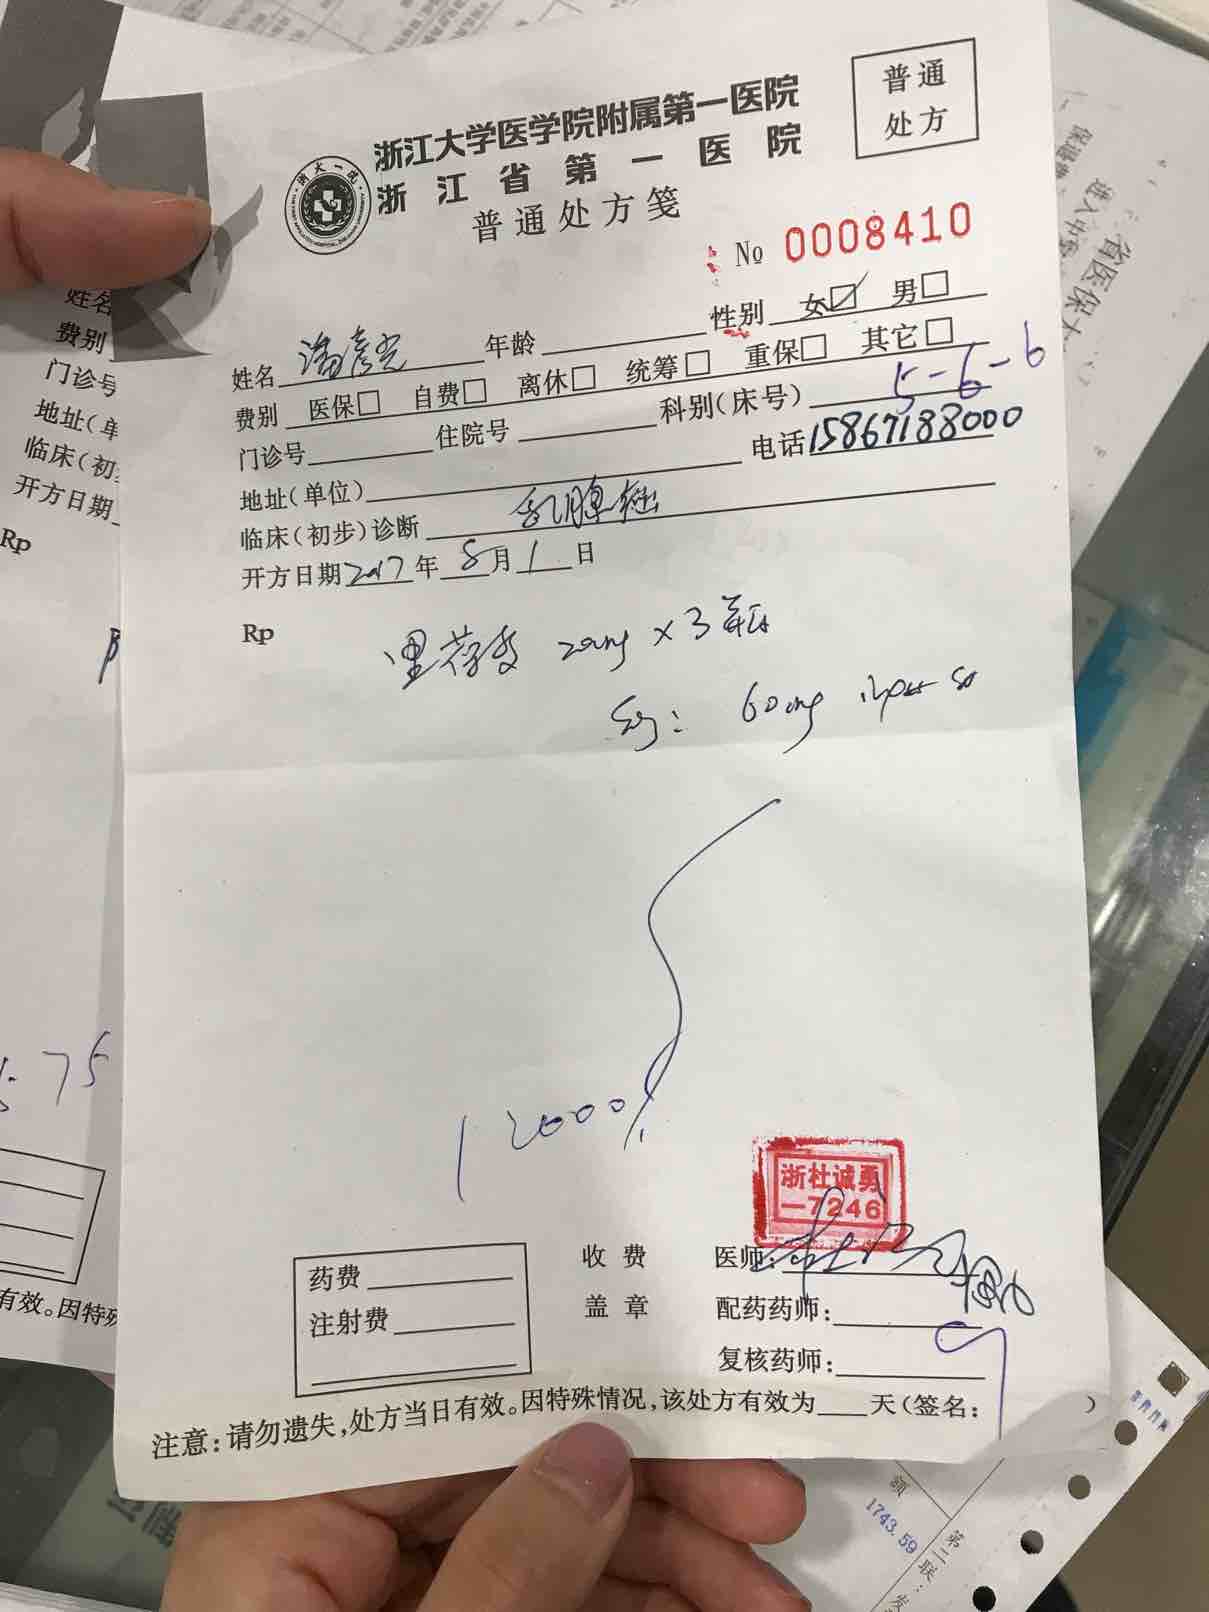 浙江大学医学院附属第一医院
浙江省第一医院
普通处方笺
普通
处方
№ 0008410
姓名 年龄 性别 女☑ 男□
费别 医保□ 自费□ 离休□ 统筹□ 重保□ 其它□
门诊号 住院号 科别(床号) 5-6-6
地址(单位) 电话 15867188000
临床(初步)诊断 乳腺
开方日期 2017 年 8 月 1 日
Rp
20mg × 3 瓶
60mg
12000
浙杜诚勇
—7246
药费
注射费
收费
盖章
医师:
配药药师:
复核药师:
注意:请勿遗失,处方当日有效。因特殊情况,该处方有效为 天(签名: )
姓名
费别
门诊号
地址(单
临床(初
开方日期
Rp
75
有效。因特殊
省医保大
额
1743.59
第二联:发